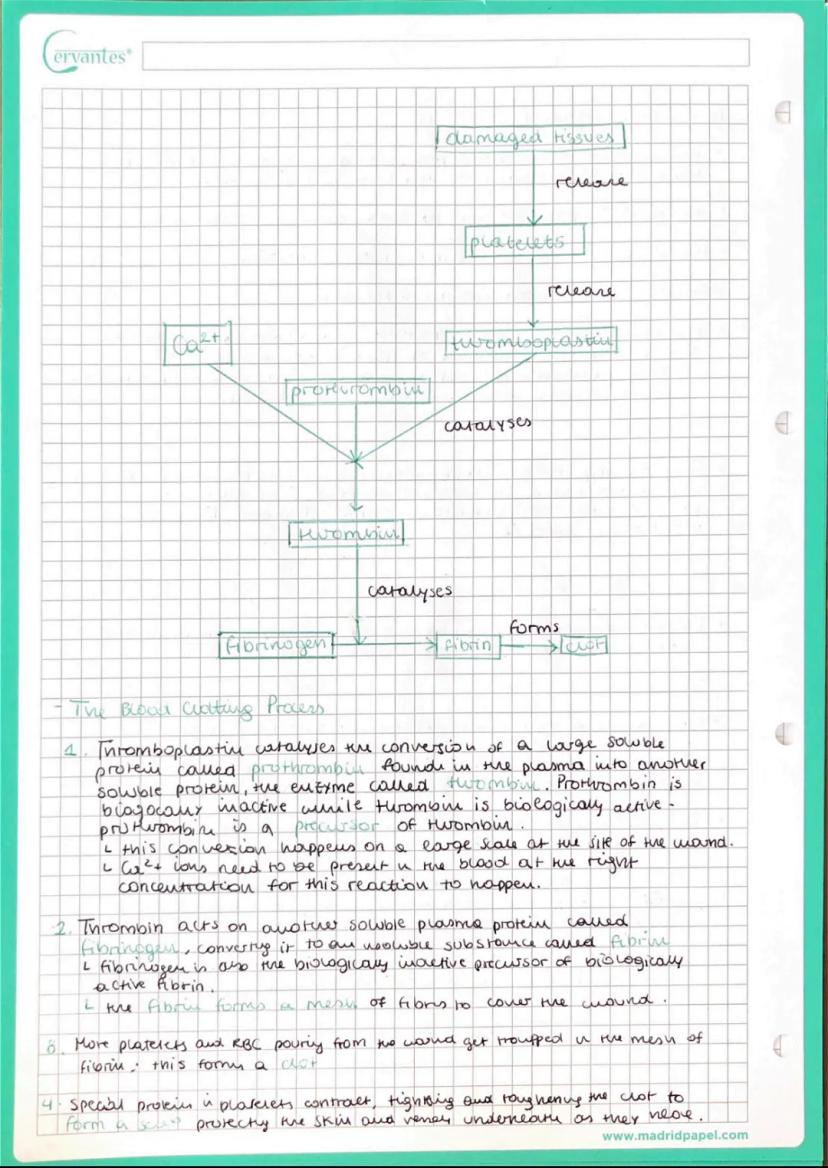 Cervantes®
damaged tissues
release
platelets
release
Ca²⁺
thromboplastin
prothrombin
catalyses
thrombin
catalyses
fibrinogen
fibrin
forms
clot
- The Blood Clotting Process
1. Thromboplastin catalyses the conversion of a large soluble
protein called prothrombin found in the plasma into another
soluble protein, the enzyme called thrombin. Prothrombin is
biologocally inactive while thrombin is biologically active.
prothrombin is a precursor of thrombin.
└ this conversion happens on a large scale at the site of the wound.
└ Ca²⁺ ions need to be present in the blood at the right
concentration for this reaction to happen.
2. Thrombin acts on another soluble plasma protein called
fibrinogen, converting it to an insoluble substance called fibrin
└ fibrinogen is also the biologically inactive precursor of biologically
active fibrin.
└ the fibrin forms a mesh of fibres to cover the wound.
3. More platelets and RBC pouring from the wound get trapped in the mesh of
fibrin; this forms a clot
4. Special protein in platelets contract, tightning and toughening the clot to
form a scab protecting the skin and veins underneath as they heal.
www.madridpapel.com